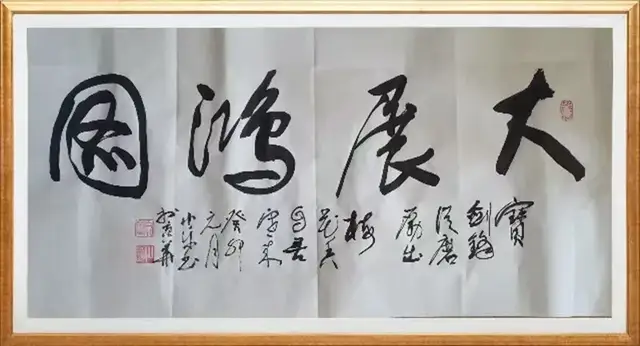 大展鸿图
寶
剑鋒
從磨
励出
梅
花香
自苦
寒来
癸卯
元月